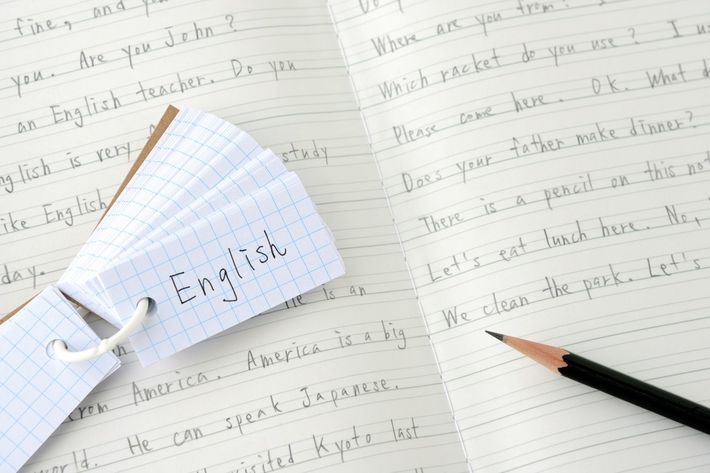 fine, and you
you. Are you John?
an English teacher. Do you
English is very
study
like English
day.
English
He is an
from America. America is a big
world. He can speak Japanese.
visited Kyoto last
Do
Where are you from?
Which racket do you use? I us
Please come here. OK. What d
Does your father make dinner?
There is a pencil on this not
Let's eat lunch here. No,
We clean the park. Let's